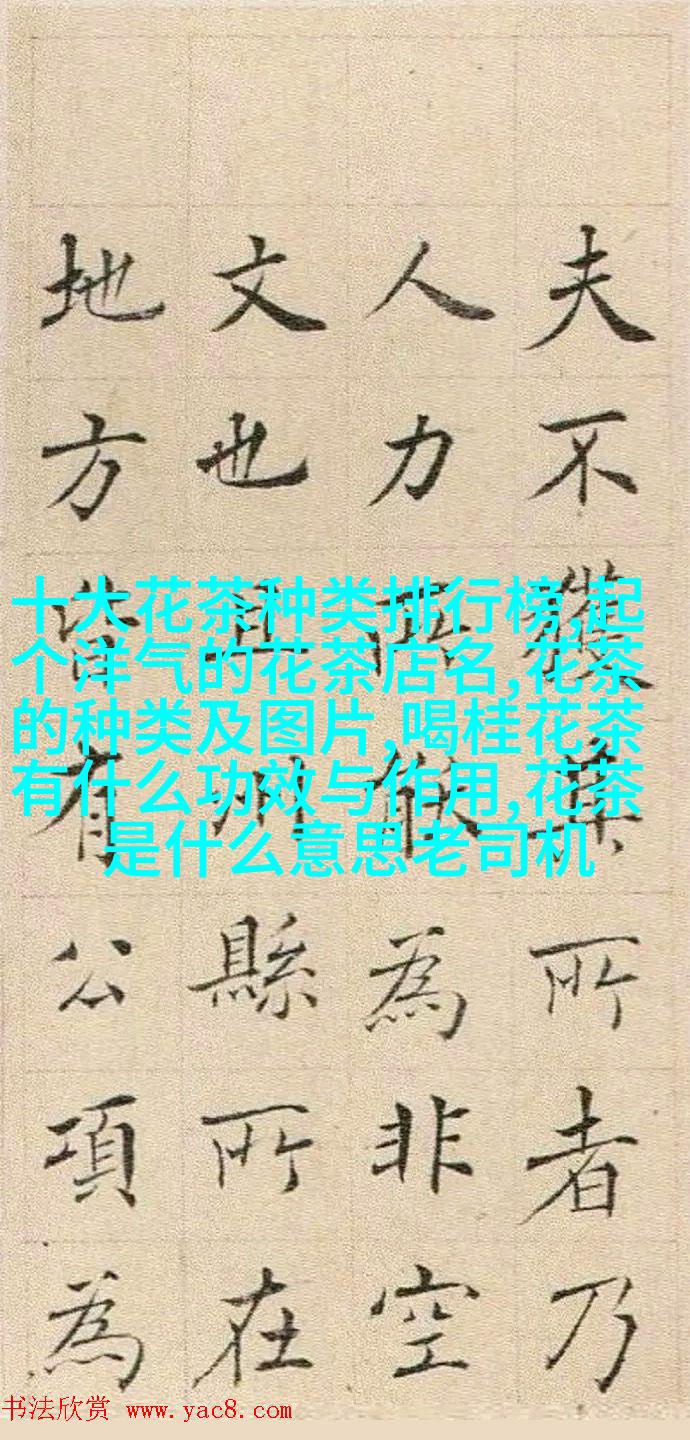 夫不獲其所者乃
人力能為非空
文也且州縣所在
地方有公項為
十大花茶种类排行榜,起
个洋气的花茶店名,花茶
的种类及图片,喝桂花茶
有什么功效与作用,花茶
是什么意思老司机
书法欣赏 www.yac8.com